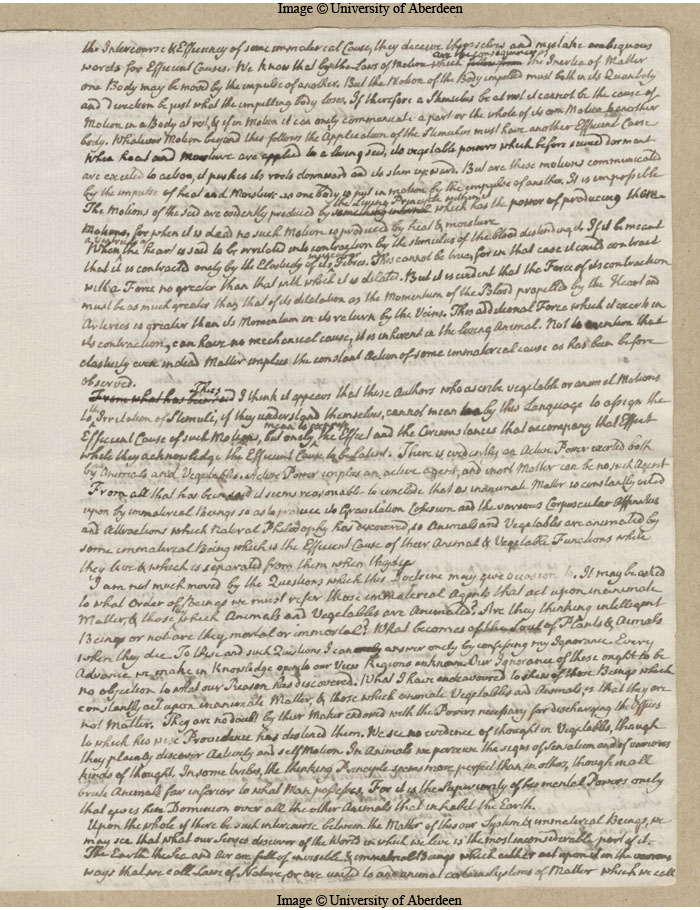 Image © University of Aberdeen
the Intercourse & Efficiency of some immaterial Cause, they deceive themselves and mistake ambiguous
words for Efficient Causes. We know that by the Laws of Motion which are the consequences of the Inertia of Matter
one Body may be moved by the impulse of another. But the Motion of the Body impelled must both in its Quantity
and Direction be just what the impelling body loses. If therefore a Stimulus be at rest it cannot be the cause of
Motion in a Body at rest, & if in Motion it can onely communicate a part or the whole of its own Motion to another
body. Whatever Motion beyond this follows the Application of the Stimulus must have another Efficient Cause
When heat and moisture are applied to a living seed, its vegetable powers which before seemed dormant
are excited to action, it pushes its roots downward and its stem upward. But are these motions communicated
by the impulse of heat and Moisture as one body is put in motion by the impulse of another. It is impossible
The Motions of the Seed are evidently produced by something internal the Living Principle within which has the power of producing them
Motions, for when it is dead no such Motion is produced by heat & moisture
When the heart is said to be irritated into contraction by the stimulus of the blood distending it. If it be meant
that it is contracted onely by the Elasticity of its Fibres. This cannot be true, for in that case it could contract
with a Force no greater than that with which it is dilated. But it is evident that the Force of its contraction
must be as much greater than that of its dilatation as the Momentum of the Blood propelled by the Heart and
Arteries is greater than its Momentum in its return by the Veins. This additional Force which it exerts in
its contraction, can have no mechanical cause, it is inherent in the living Animal. Not to mention that
elasticity even in dead Matter implies the constant Action of some immaterial cause as has been before
observed.
From what has been said Thus I think it appears that those Authors who ascribe vegetable or animal Motions
to the Irritation of Stimuli, if they understand themselves, cannot mean by this Language to assign the
Efficient Cause of such Motions, but onely the Effect and the Circumstances that accompany that Effect
while they acknowledge the Efficient Cause to be latent. There is evidently an Active Power exerted both
by Animals and Vegetables. Active Power implies an active agent, and inert Matter can be no such Agent
From all that has been said it seems reasonable to conclude that as inanimate Matter is constantly acted
upon by immaterial Beings so as to produce its Gravitation Cohesion and the various Corpuscular Affinities
and Attractions which Natural Philosophy has discovered, so Animals and Vegetables are animated by
some immaterial Being which is the Efficient Cause of their Animal & Vegetable Functions while
they live & which is separated from them when they die
I am not much moved by the Questions which this Doctrine may give occasion to. It may be asked
to what Order of Beings we must refer those immaterial Agents that act upon inanimate
Matter, & those which Animals and Vegetables are Animated? Are they thinking intelligent
Beings or not are they mortal or immortal? What becomes of the Soul of Plants & Animals
when they die. To these and such Questions I can onely answer onely by confessing my Ignorance. Every
Advance we make in Knowledge opens to our View Regions unknown. Our Ignorance of these ought to be
no objection to what our Reason has discovered. What I have endeavoured to shew of those Beings which
constantly act upon inanimate Matter, & those which animate Vegetables and Animals, is that they are
not Matter. They are no doubt by their Maker endowed with the Powers necessary for discharging the Offices
to which his wise Providence has destined them. We see no evidence of thought in Vegetables, though
they plainly discover Activity and self Motion. In Animals we perceive the signs of Sensation and of various
kinds of thought. In some tribes, the thinking Principle seems more perfect than in others, though in all
brute Animals far inferior to what Man possesses. For it is the Superiority of his mental Powers onely
that gives him Dominion over all the other Animals that inhabit the Earth.
Upon the whole if there be such intercourse between the Matter of this our System & immaterial Beings, we
may see that what our Senses discover of the World in which we live is the most inconsiderable part of it.
The Earth the Sea and Air are full of invisible & immaterial Beings which either act upon it in the various
ways that we call Laws of Nature, or are united to and animat certain Systems of Matter which we call
Image © University of Aberdeen